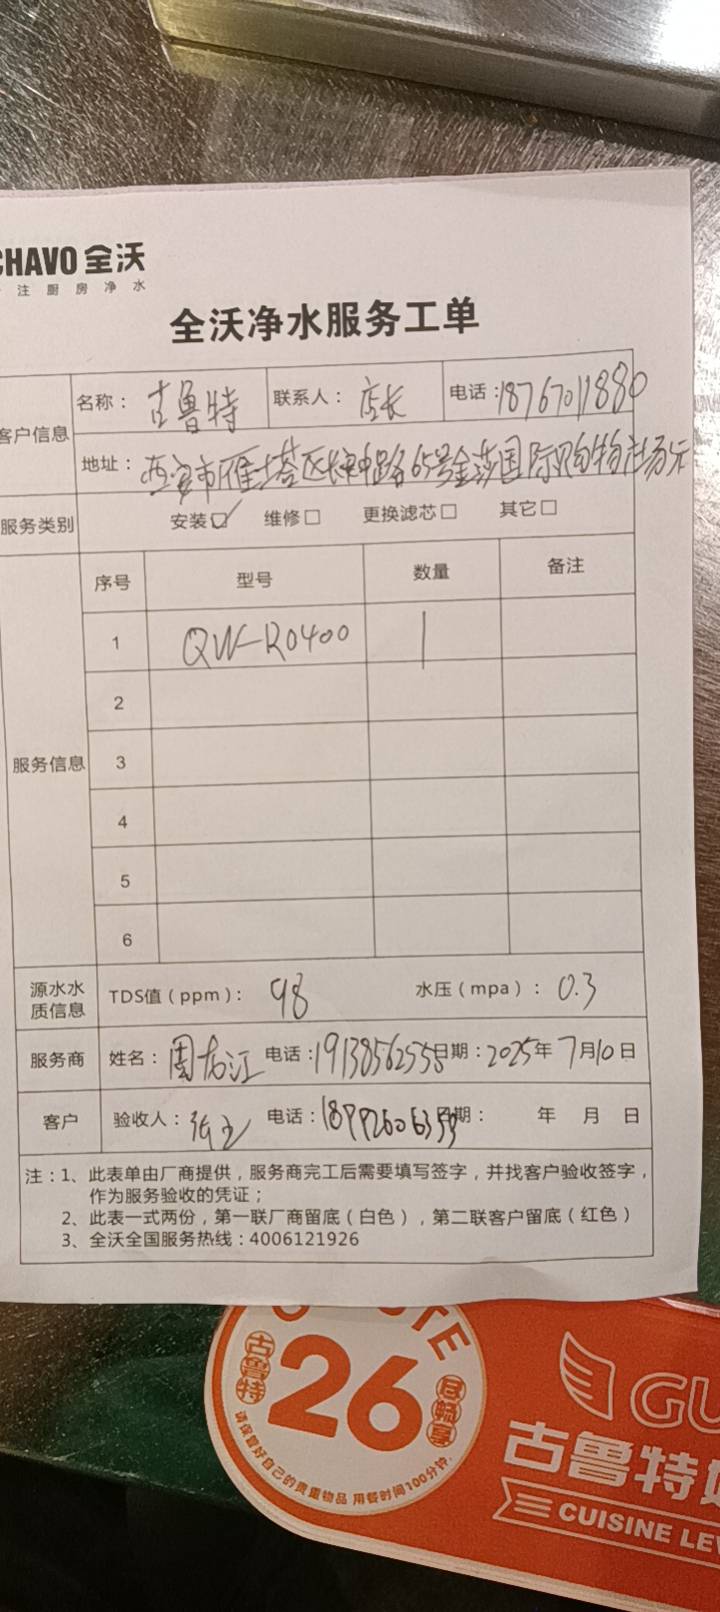 CHAVO 全沃
注厨房净水
全沃净水服务工单
客户信息
名称：古鲁特 联系人：店长 电话：18767011880
地址：西安市雁塔区长安中路65号金莎国际购物
服务类别 安装☑ 维修□ 更换滤芯□ 其它□
服务信息
序号 型号 数量 备注
1 QW-RO400 1
2
3
4
5
6
源水水质信息 TDS值（ppm）：98 水压（mpa）：0.3
服务商 姓名： 电话：19138562558 日期：2025年7月10日
客户 验收人： 电话： 日期： 年 月 日
注：1、此表单由厂商提供，服务商完工后需要填写签字，并找客户验收签字，
作为服务验收的凭证；
2、此表一式两份，第一联厂商留底（白色），第二联客户留底（红色）
3、全沃全国服务热线：4006121926
古鲁特
26
尽畅享
请保管好自己的贵重物品 用餐时间100分钟.
GU
古鲁特
CUISINE LE